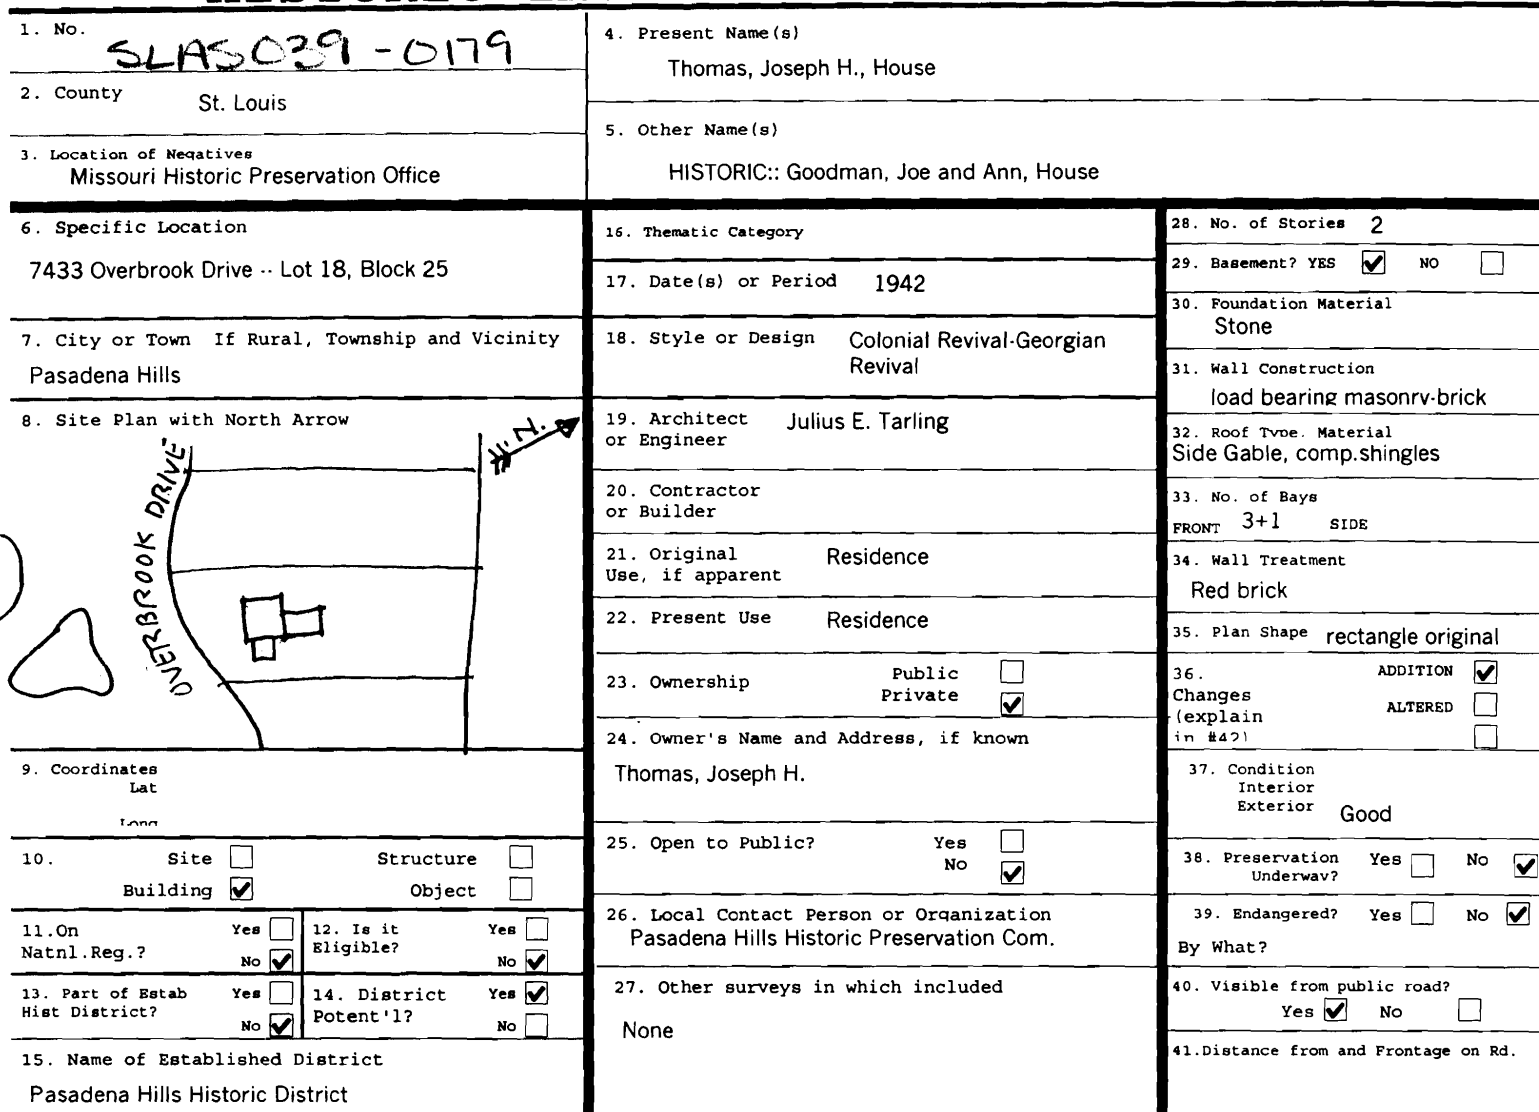 1. No.
SLAS039-0179
2. County
St. Louis
3. Location of Negatives
Missouri Historic Preservation Office
4. Present Name(s)
Thomas, Joseph H., House
5. Other Name(s)
HISTORIC:: Goodman, Joe and Ann, House
6. Specific Location
7433 Overbrook Drive -- Lot 18, Block 25
7. City or Town If Rural, Township and Vicinity
Pasadena Hills
8. Site Plan with North Arrow
N.
OVERBROOK DRIVE
9. Coordinates
Lat
Long
10. Site Structure
Building Object
11.On Yes
Natnl.Reg.?
No
12. Is it Yes
Eligible?
No
13. Part of Estab Yes
Hist District?
No
14. District Yes
Potent'l?
No
15. Name of Established District
Pasadena Hills Historic District
16. Thematic Category
17. Date(s) or Period 1942
18. Style or Design Colonial Revival-Georgian
Revival
19. Architect Julius E. Tarling
or Engineer
20. Contractor
or Builder
21. Original Residence
Use, if apparent
22. Present Use Residence
23. Ownership Public
Private
24. Owner's Name and Address, if known
Thomas, Joseph H.
25. Open to Public? Yes
No
26. Local Contact Person or Organization
Pasadena Hills Historic Preservation Com.
27. Other surveys in which included
None
28. No. of Stories 2
29. Basement? YES NO
30. Foundation Material
Stone
31. Wall Construction
load bearing masonry-brick
32. Roof Type. Material
Side Gable, comp.shingles
33. No. of Bays
FRONT 3+1 SIDE
34. Wall Treatment
Red brick
35. Plan Shape rectangle original
36. ADDITION
Changes
(explain ALTERED
in #42)
37. Condition
Interior
Exterior Good
38. Preservation Yes No
Underway?
39. Endangered? Yes No
By What?
40. Visible from public road?
Yes No
41.Distance from and Frontage on Rd.